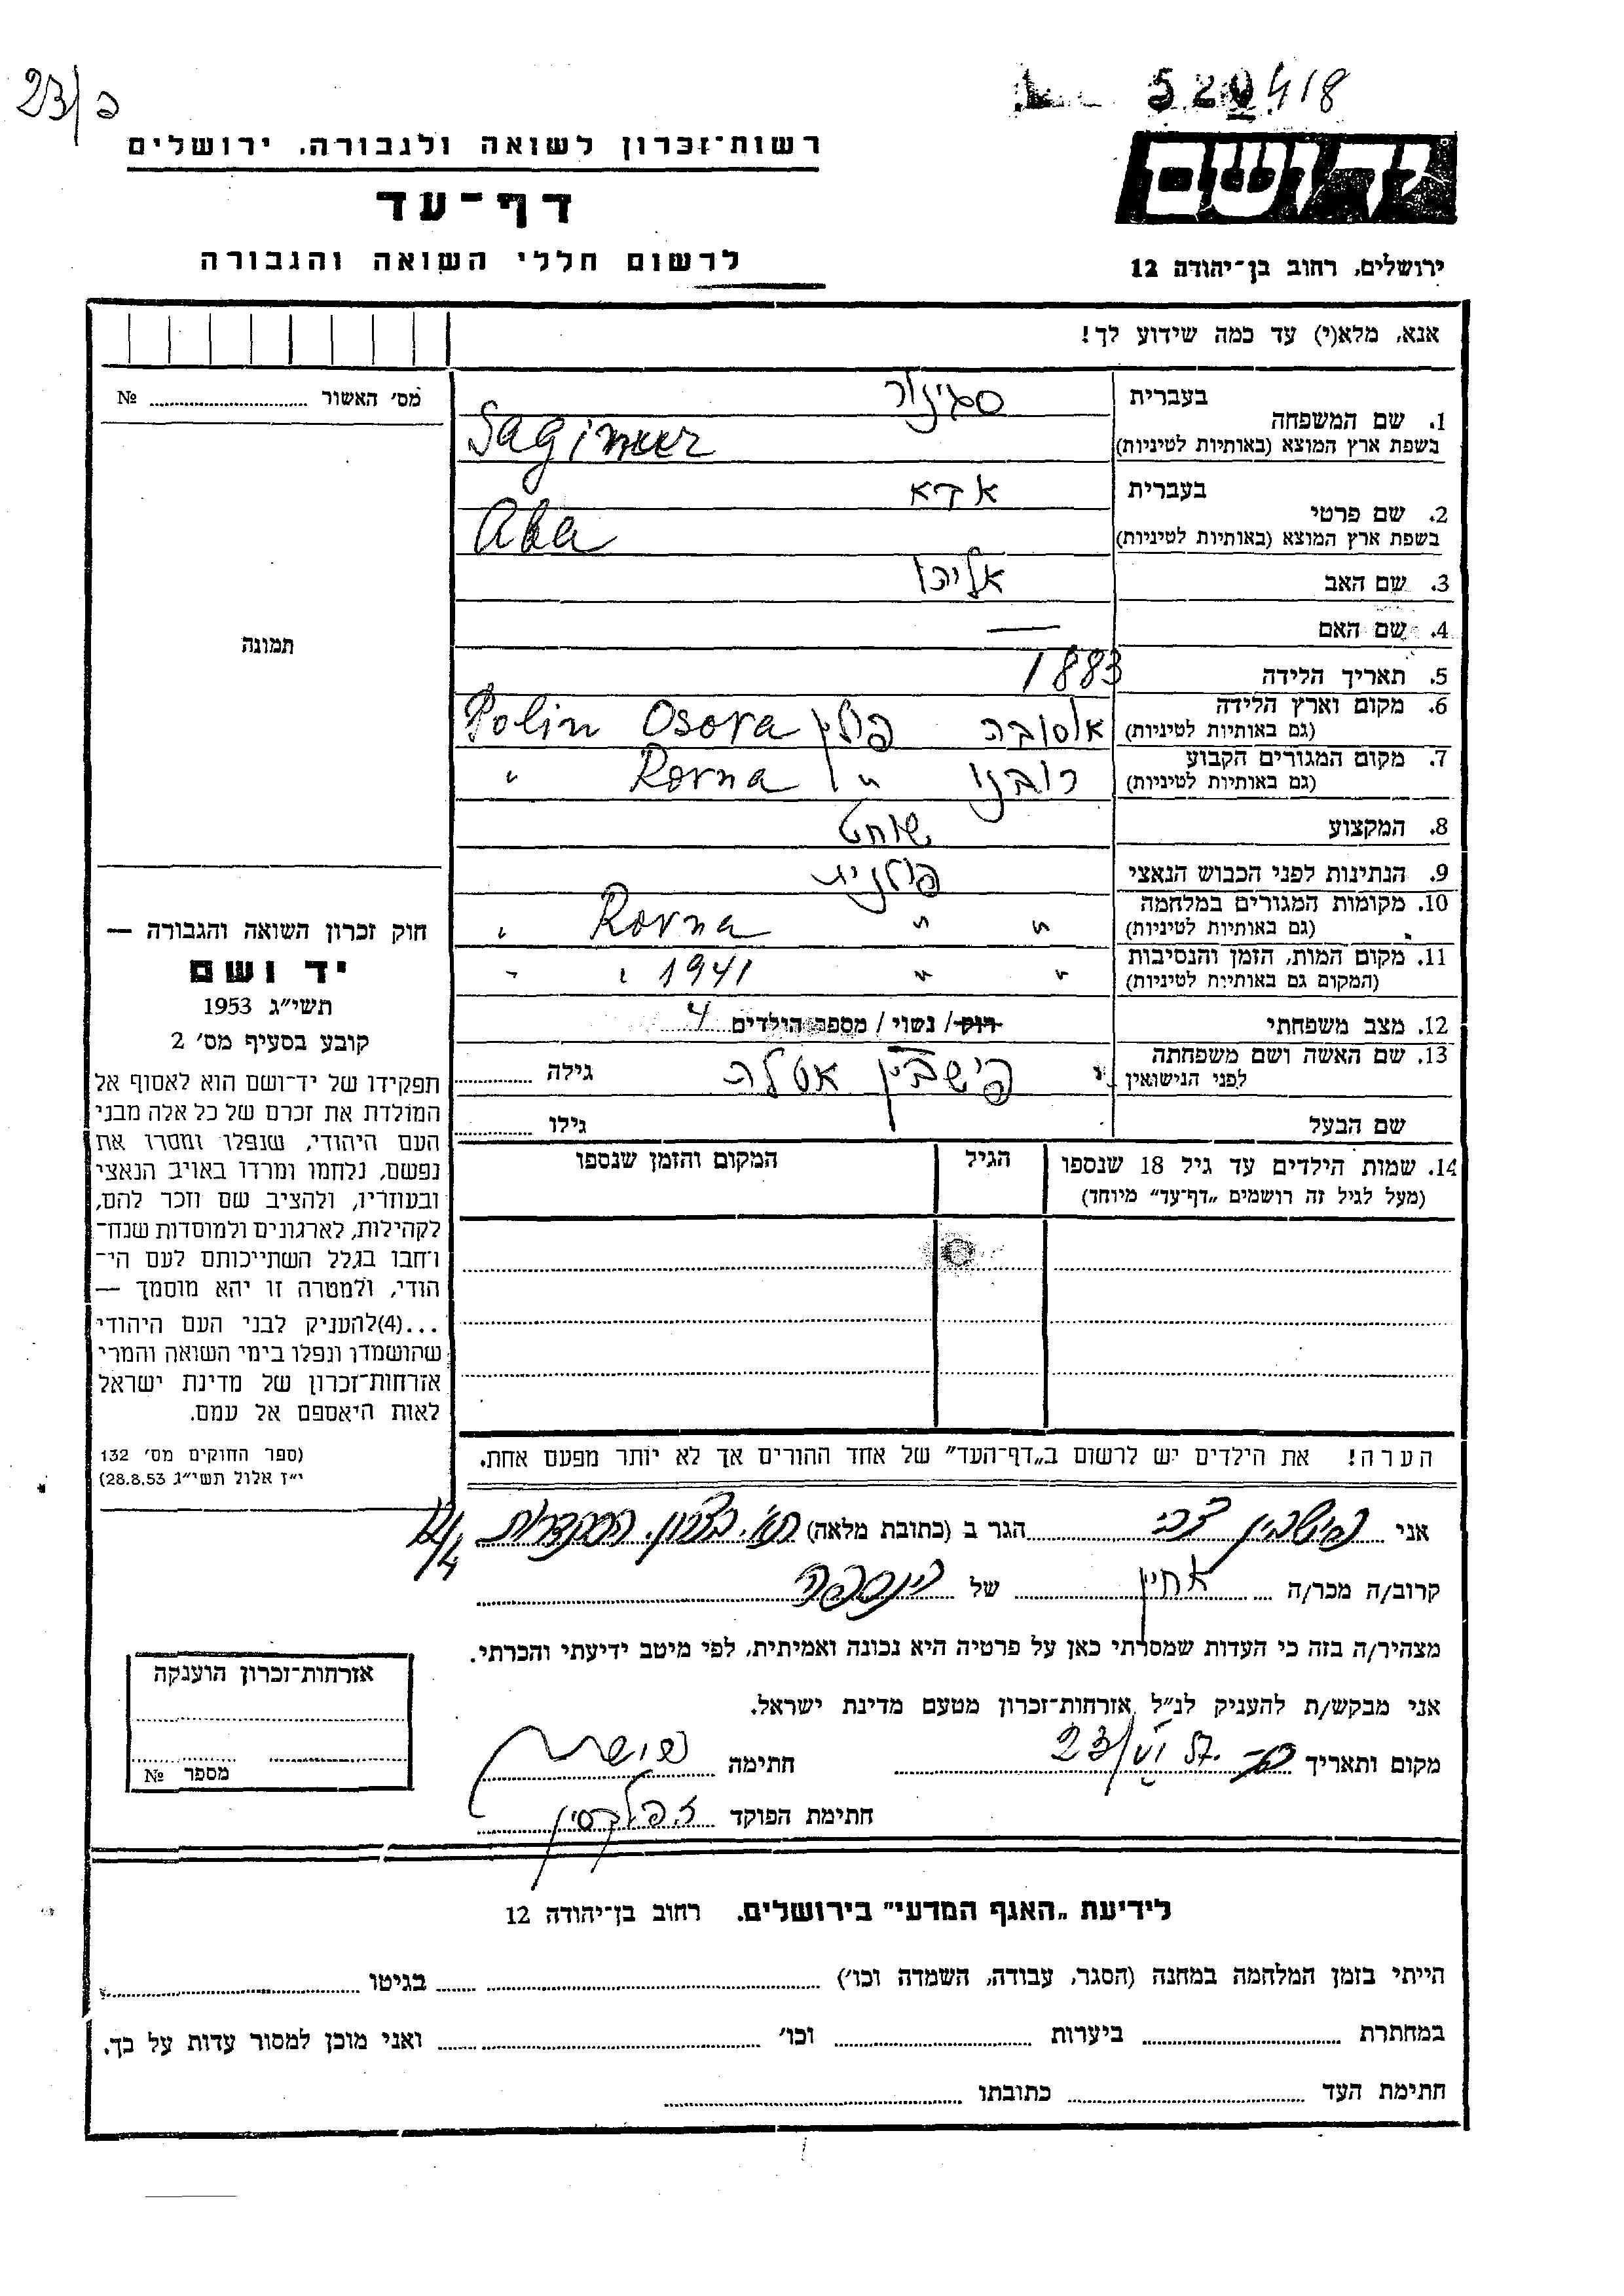 23/כ
520418
רשות־זכרון לשואה ולגבורה, ירושלים
דף־עד
לרשום חללי השואה והגבורה
יד ושם
ירושלים, רחוב בן־יהודה 12
אנא, מלא(י) עד כמה שידוע לך!
מס׳ האשור № 
תמונה
חוק זכרון השואה והגבורה —
יד ושם
תשי״ג 1953
קובע בסעיף מס׳ 2
תפקידו של יד־ושם הוא לאסוף אל
המולדת את זכרם של כל אלה מבני
העם היהודי, שנפלו ומסרו את
נפשם, נלחמו ומרדו באויב הנאצי
ובעוזריו, ולהציב שם וזכר להם,
לקהילות, לארגונים ולמוסדות שנח־
רחבו בגלל השתייכותם לעם הי־
הודי, ולמטרה זו יהא מוסמך —
...(4)להעניק לבני העם היהודי
שהושמדו ונפלו בימי השואה והמרי
אזרחות־זכרון של מדינת ישראל
לאות היאספם אל עמם.
(ספר החוקים מס׳ 132
י״ז אלול תשי״ג 28.8.53)
בעברית
1. שם המשפחה
בשפת ארץ המוצא (באותיות לטיניות) Sagimeer
בעברית אבא
2. שם פרטי
בשפת ארץ המוצא (באותיות לטיניות) Aba
3. שם האב אליהו
4. שם האם —
5. תאריך הלידה 1883
6. מקום וארץ הלידה
(גם באותיות לטיניות) אוסובה פולין Osova Polin
7. מקום המגורים הקבוע
(גם באותיות לטיניות) רובנו " Rovna "
8. המקצוע שוחט
9. הנתינות לפני הכבוש הנאצי פולנית
10. מקומות המגורים במלחמה
(גם באותיות לטיניות) " " Rovna "
11. מקום המות, הזמן והנסיבות
(המקום גם באותיות לטיניות) " " 1941 " "
12. מצב משפחתי רוק/ נשוי / מספר הילדים 4
13. שם האשה ושם משפחתה
לפני הנישואין פישבין אטלה גילה
שם הבעל גילו
14. שמות הילדים עד גיל 18 שנספו הגיל המקום והזמן שנספו
(מעל לגיל זה רושמים „דף־עד״ מיוחד)
הערה! את הילדים יש לרשום ב„דף־העד״ של אחד ההורים אך לא יותר מפעם אחת.
אני פישבין צבי הגר ב (כתובת מלאה)
קרוב/ה מכר/ה אחיין של
מצהיר/ה בזה כי העדות שמסרתי כאן על פרטיה היא נכונה ואמיתית, לפי מיטב ידיעתי והכרתי.
אני מבקש/ת להעניק לנ״ל אזרחות־זכרון מטעם מדינת ישראל.
מקום ותאריך 23/VI 57. חתימה
חתימת הפוקד
אזרחות־זכרון הוענקה
מספר №
לידיעת „האגף המדעי״ בירושלים. רחוב בן־יהודה 12
הייתי בזמן המלחמה במחנה (הסגר, עבודה, השמדה וכו׳) בגיטו
במחתרת ביערות וכו׳ ואני מוכן למסור עדות על כך.
חתימת העד כתובתו